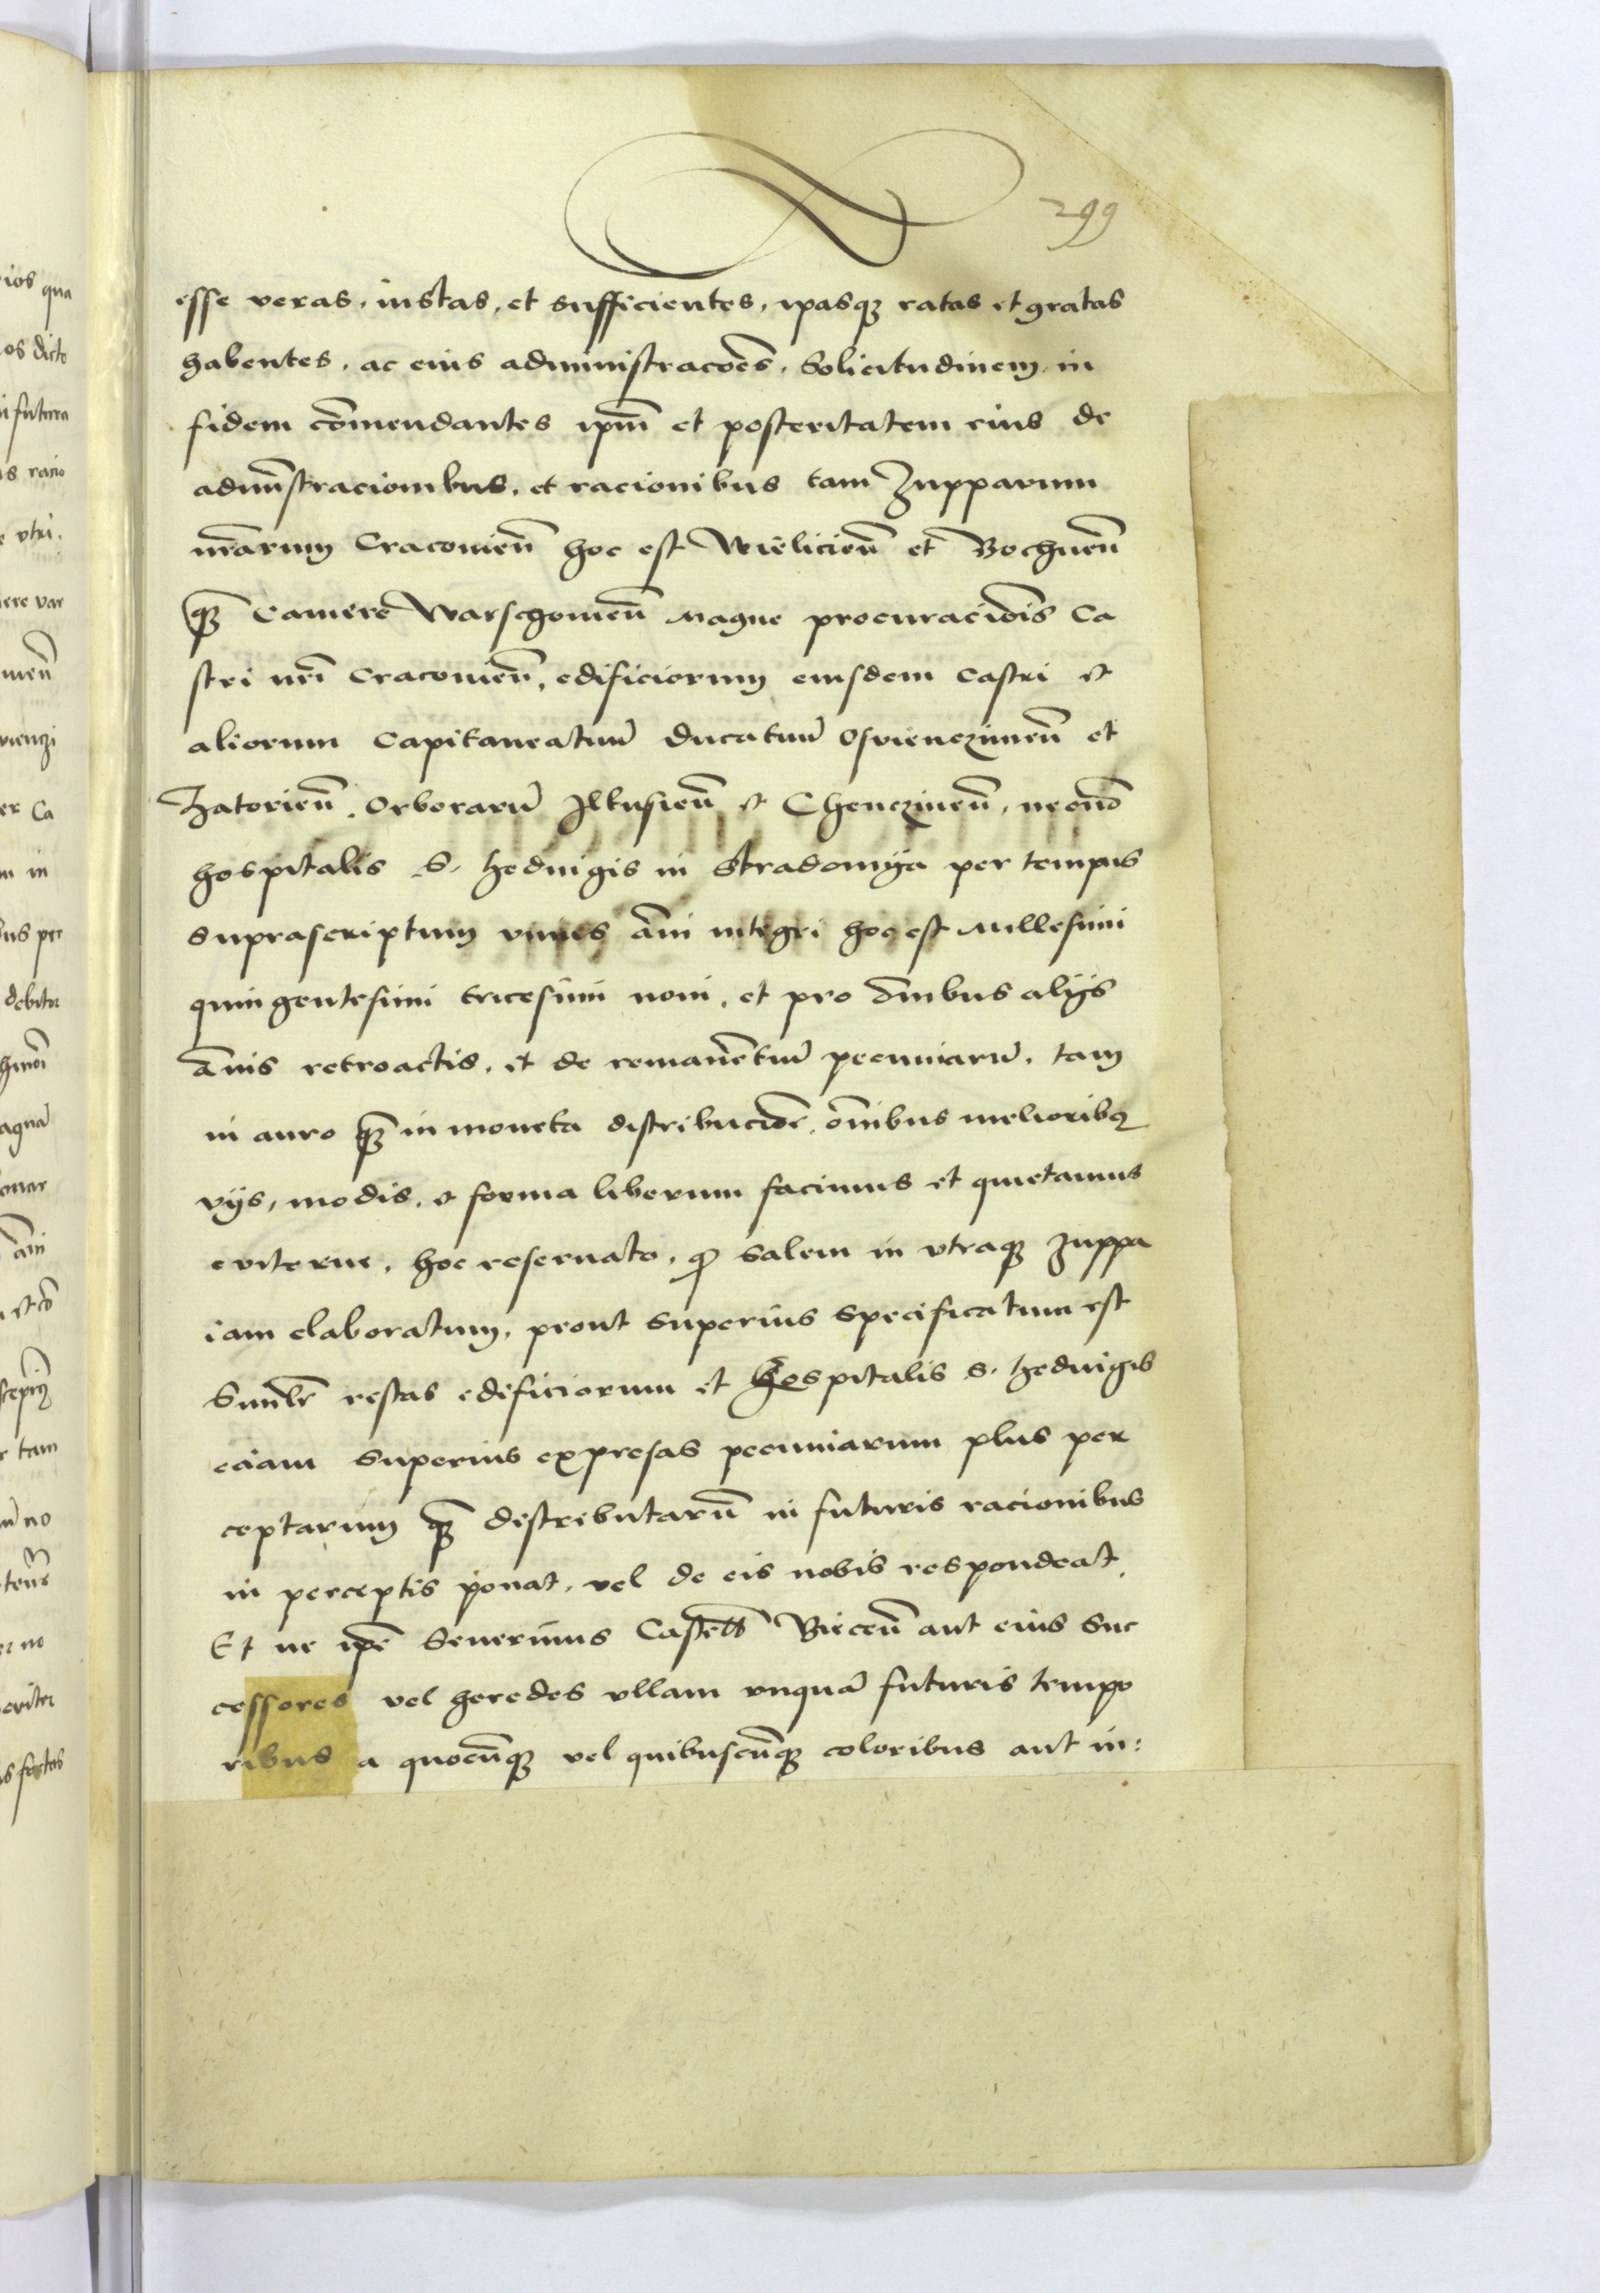 299
esse veras, iustas, et sufficientes, ip̄asq3 ratas et gratas
habentes, ac eius administracōes, Solicitudinem in
fidem cōmendantes ip̄m et posteritatem eius de
admīstracionibus, et racionibus tam Zupparum
nr̄arum Cracovien̄ hoc est Wielicien̄ et Bochnen̄
q̄3 Camere Warschovien̄ Magne procuraciōis Ca
stri nr̄i Cracovien̄, edificiorum eiusdem Castri et
aliorum Capitaneatuū Ducatuū Osvienczimen̄ et
Zatorien̄, Orborarū Ilkusien̄ et Chenczinen̄, necnō
hospitalis S. Hedvigis in Stradomya per tempus
suprascriptum unius ān̄i integri hoc est Millesimi
quingentesimi tricesimi noni, et pro ōnibus alijs
Ān̄is retroactis, et de remanētiū pecuniarū, tam
in auro q̄3 in moneta distribuciōe, ōnibus melioribq
vijs, modis, et forma liberum facimus et quietamus
eviterne, hoc reservato, q̄ salem in utraq3 zuppa
iam elaboratum, prout superius specificatum est
Simīlr restas edificiorum et hospitalis S. Hedvigis
eciam superius expresas pecuniarum plus per
ceptarum q̄3 distributarū in futuris racionibus
in perceptis ponat, vel de eis nobis respondeat.
Et ne ip̄e Severinus Castell̄ Biecen̄ aut eius suc
cessores vel heredes ullam unquā futuris tempo
ribus a quocūq3 vel quibuscūq3 coloribus aut in: